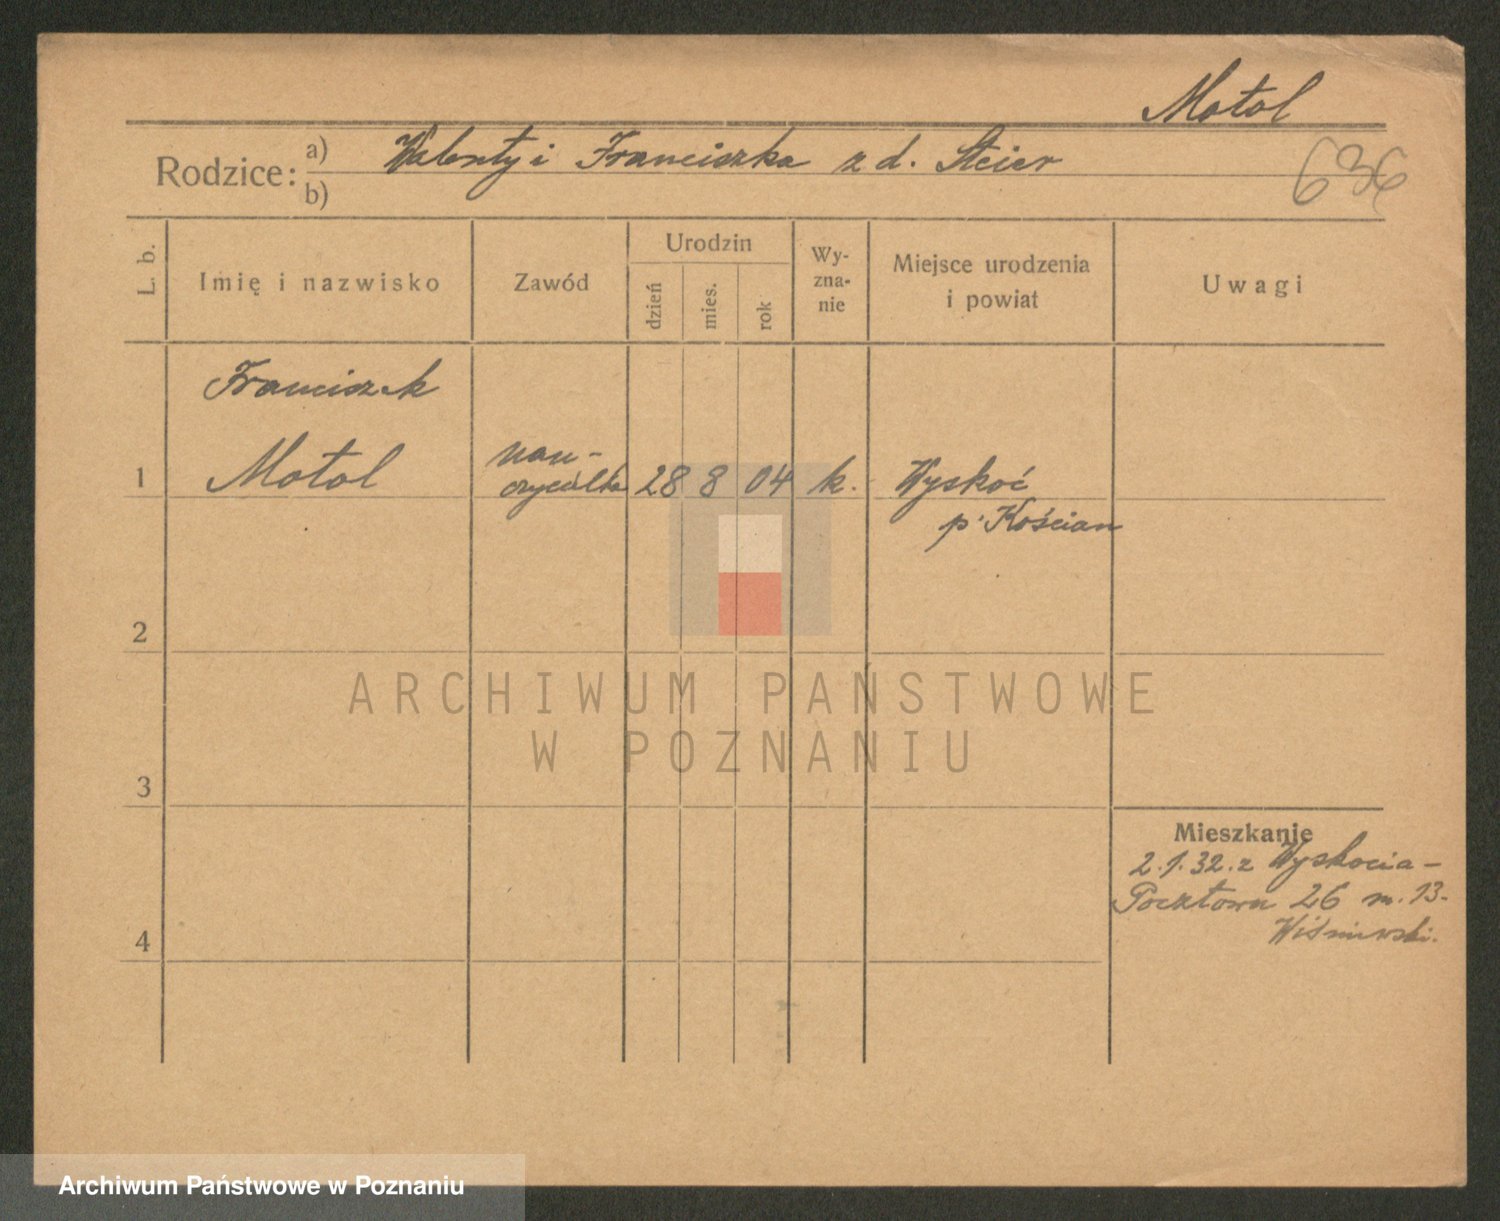 Motol
Rodzice: a) Walenty i Franciszka z d. Steier
b)
636
L. b.
Imię i nazwisko
Zawód
Urodzin
dzień
mies.
rok
Wy-
zna-
nie
Miejsce urodzenia
i powiat
Uwagi
Franciszek
1 Motol
nau-
czycielka
28 8 04 k. Wyskoć
p. Kościan
2
3
4
Mieszkanie
2.1.32. z Wyskocia –
Pocztowa 26 m. 13.
Wiśniewski.
ARCHIWUM PAŃSTWOWE
W POZNANIU
Archiwum Państwowe w Poznaniu